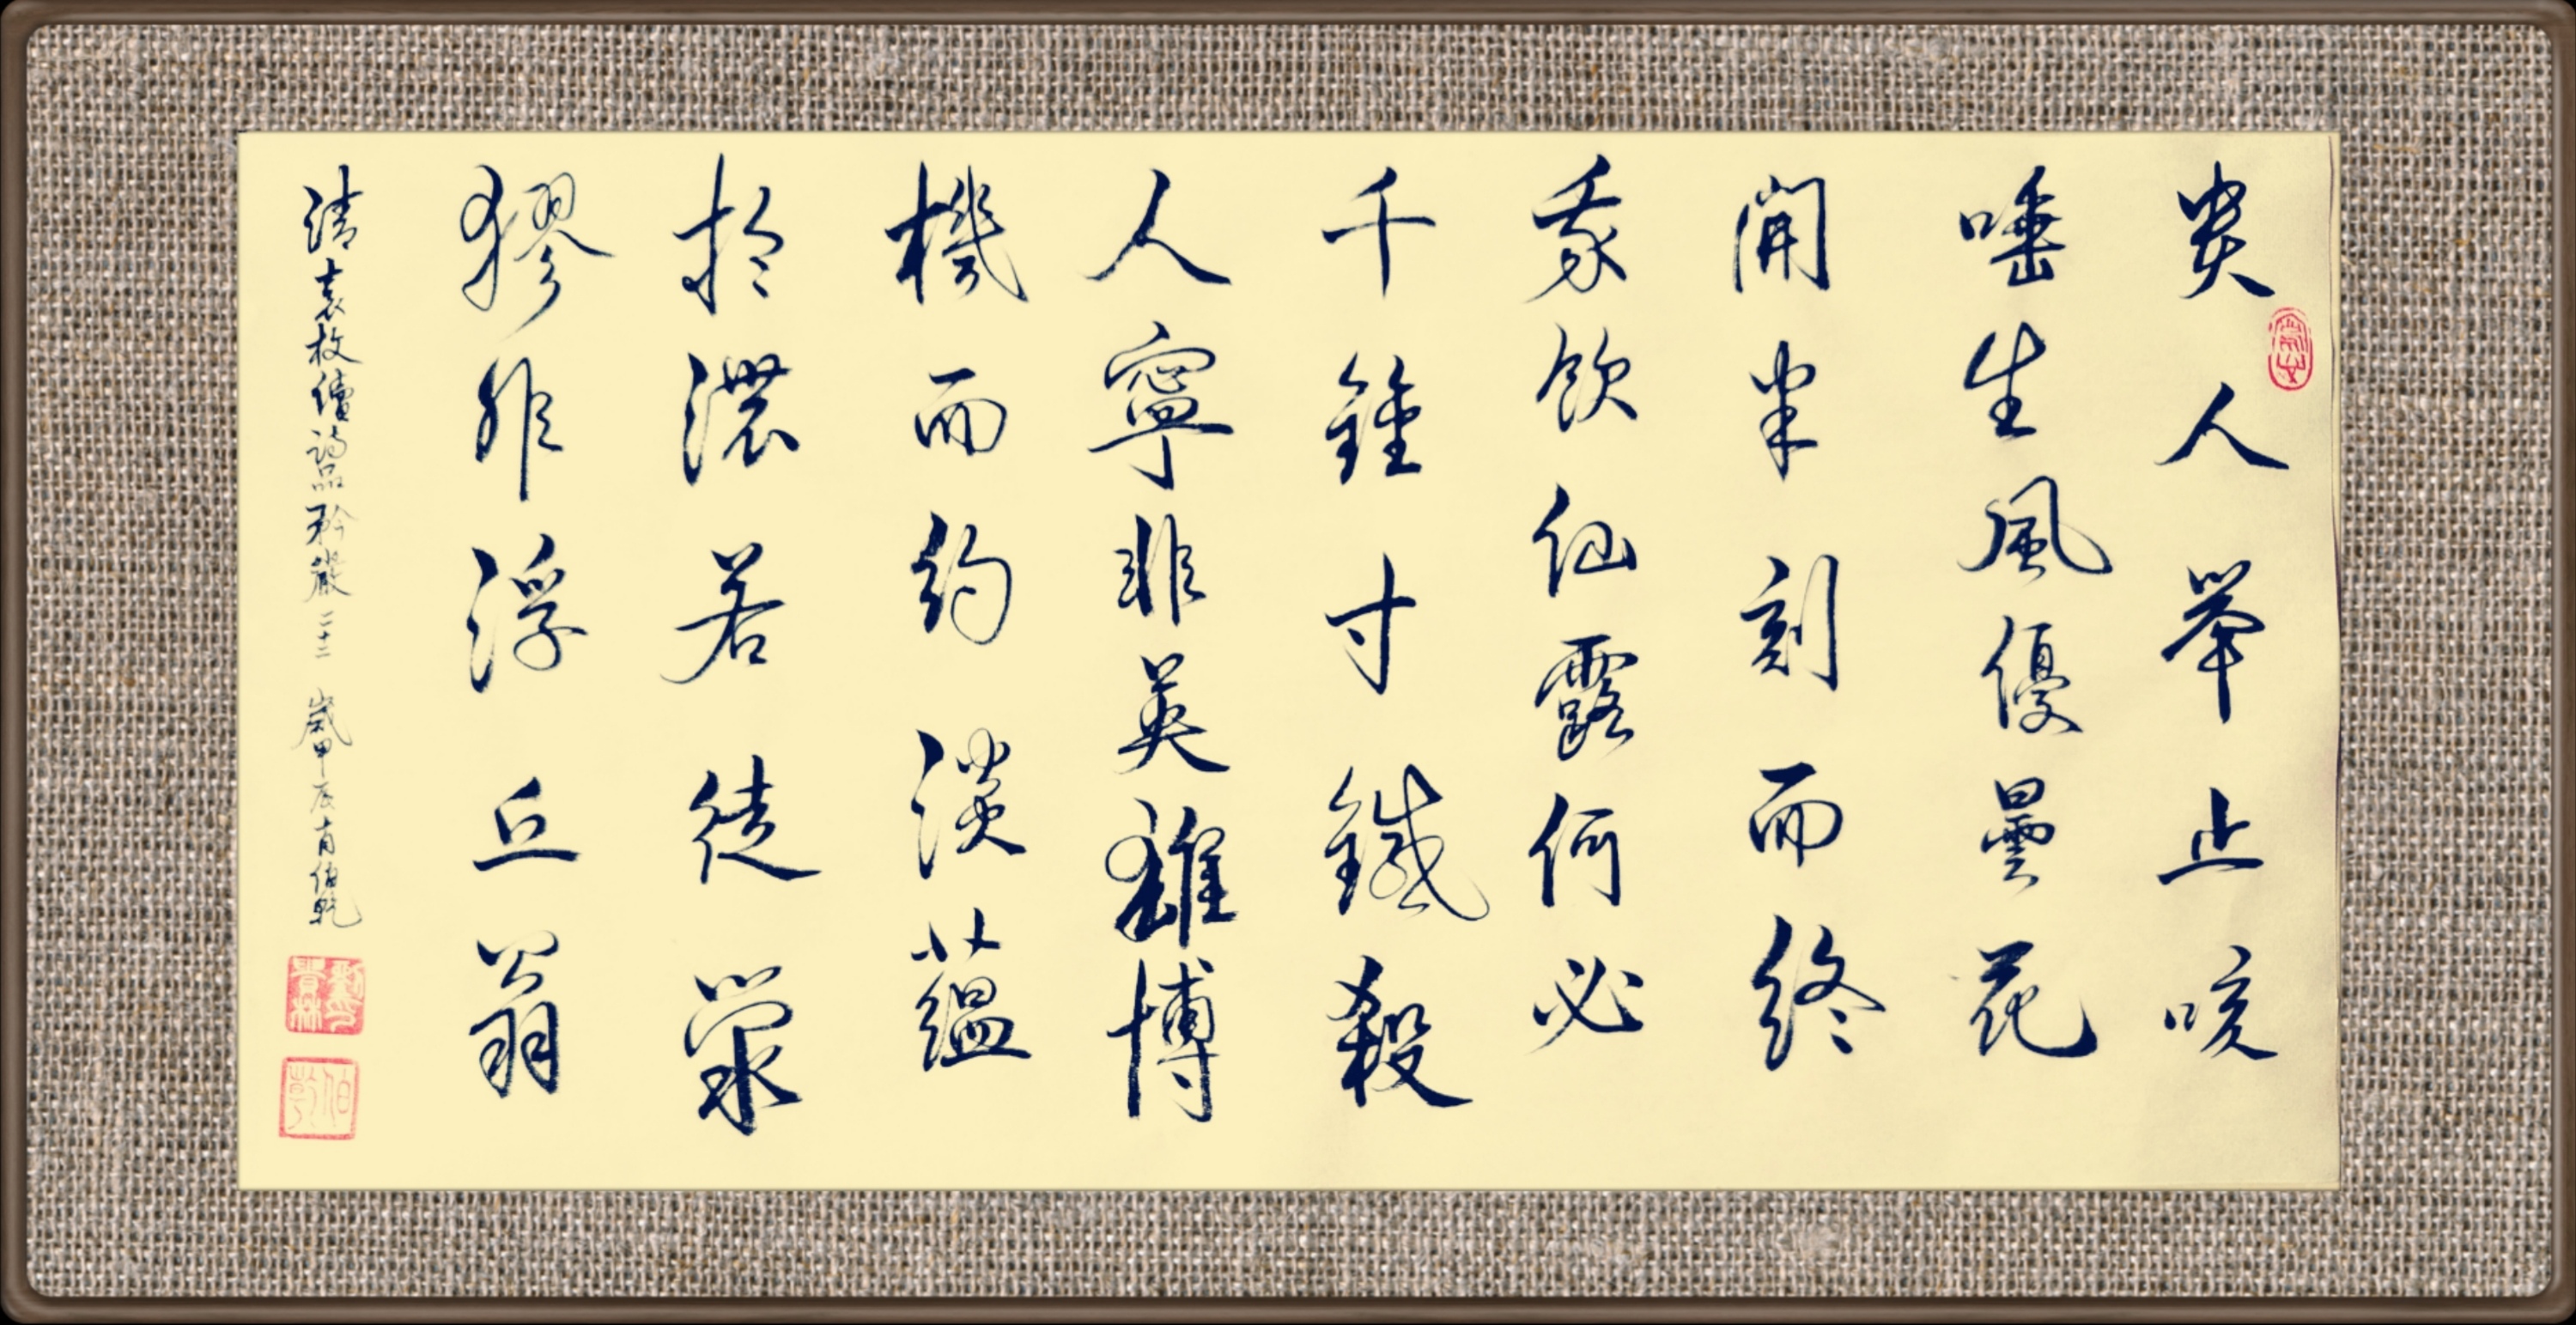 貴人舉止咳
唾生風優曇花
開半刻而終
我飲仙露何必
千鍾寸鐵殺
人寧非英雄博
機而約淡蘊
於濃若徒
非浮丘翁
清袁枚續詩品矜嚴二十二 歲甲辰肖伯乾
伯乾